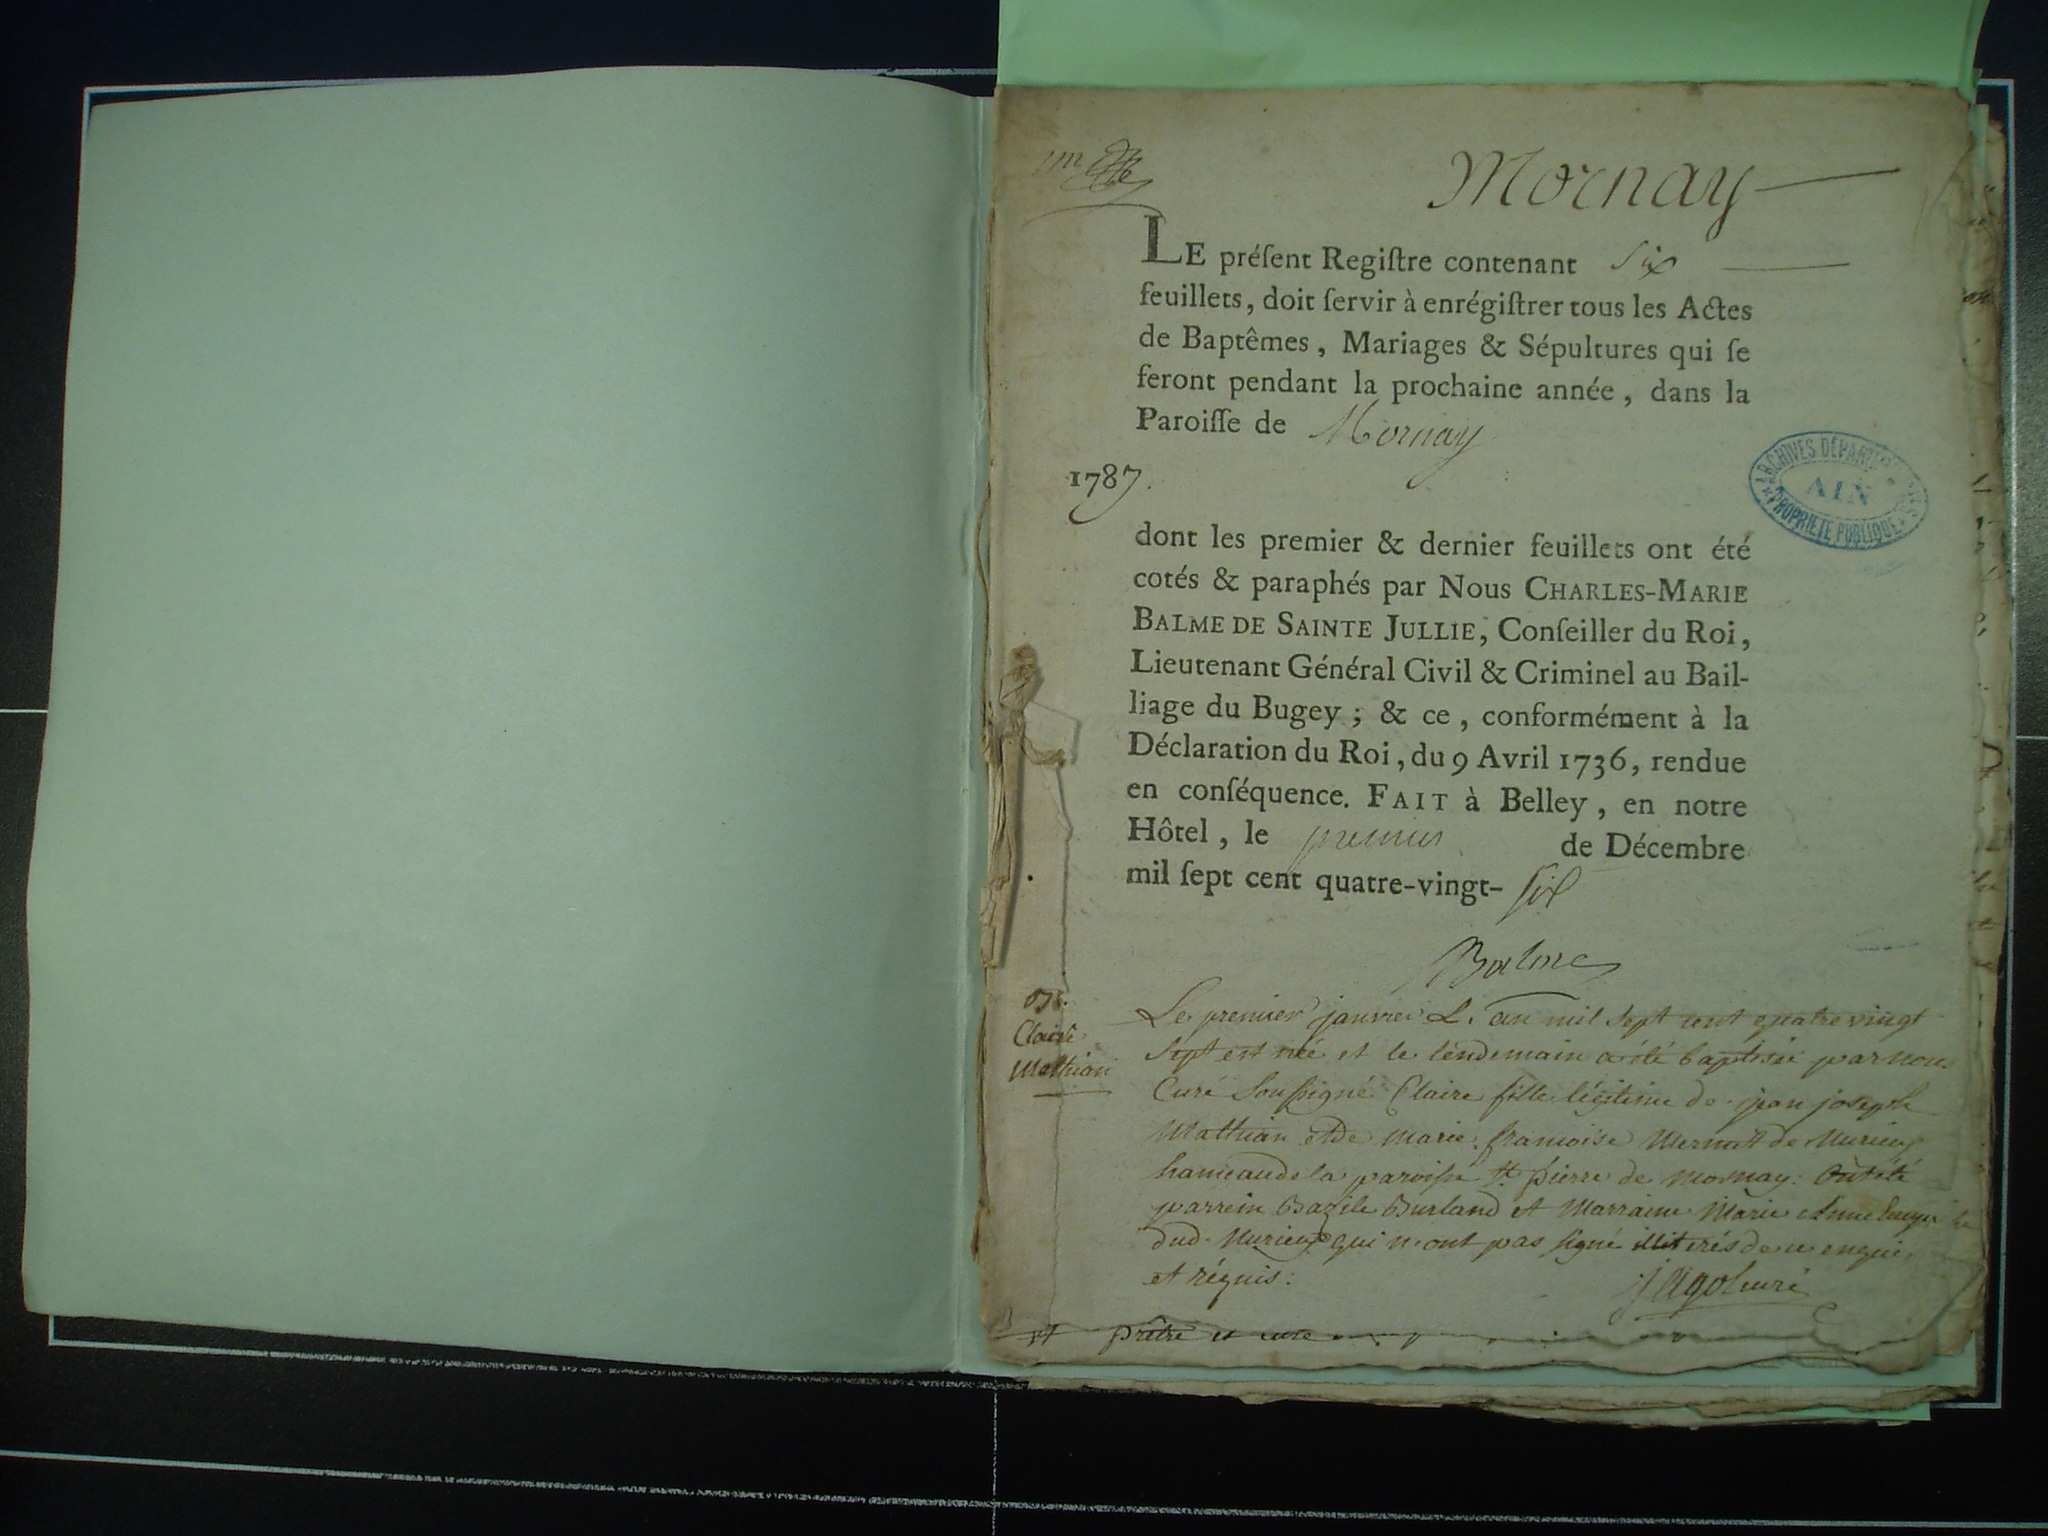 Mornay
LE préſent Regiſtre contenant Six
feuillets, doit ſervir à enrégiſtrer tous les Actes
de Baptêmes, Mariages & Sépultures qui ſe
feront pendant la prochaine année, dans la
Paroiſſe de Mornay
1787.
ARCHIVES DÉPARTEMENTALES
AIN
PROPRIÉTÉ PUBLIQUE
dont les premier & dernier feuillets ont été
cotés & paraphés par Nous CHARLES-MARIE
BALME DE SAINTE JULLIE, Conſeiller du Roi,
Lieutenant Général Civil & Criminel au Bail-
liage du Bugey ; & ce, conformément à la
Déclaration du Roi, du 9 Avril 1736, rendue
en conſéquence. FAIT à Belley, en notre
Hôtel, le premier de Décembre
mil ſept cent quatre-vingt-ſix
Balme
Claire
Mathian
Le premier janvier L'an mil sept cent quatre vingt
sept est née et le lendemain a été baptisée par nous
Curé Soussigné Claire fille légitime de jean joseph
Mathian et de Marie françoise de Murieux
hameau de la paroisse St pierre de Mornay: Ont été
parrein Bazile Burland et Marraine Marie Anne
dud. Murieux qui n'ont pas signé de ce enquis
et réquis:
curé
prêtre et curé